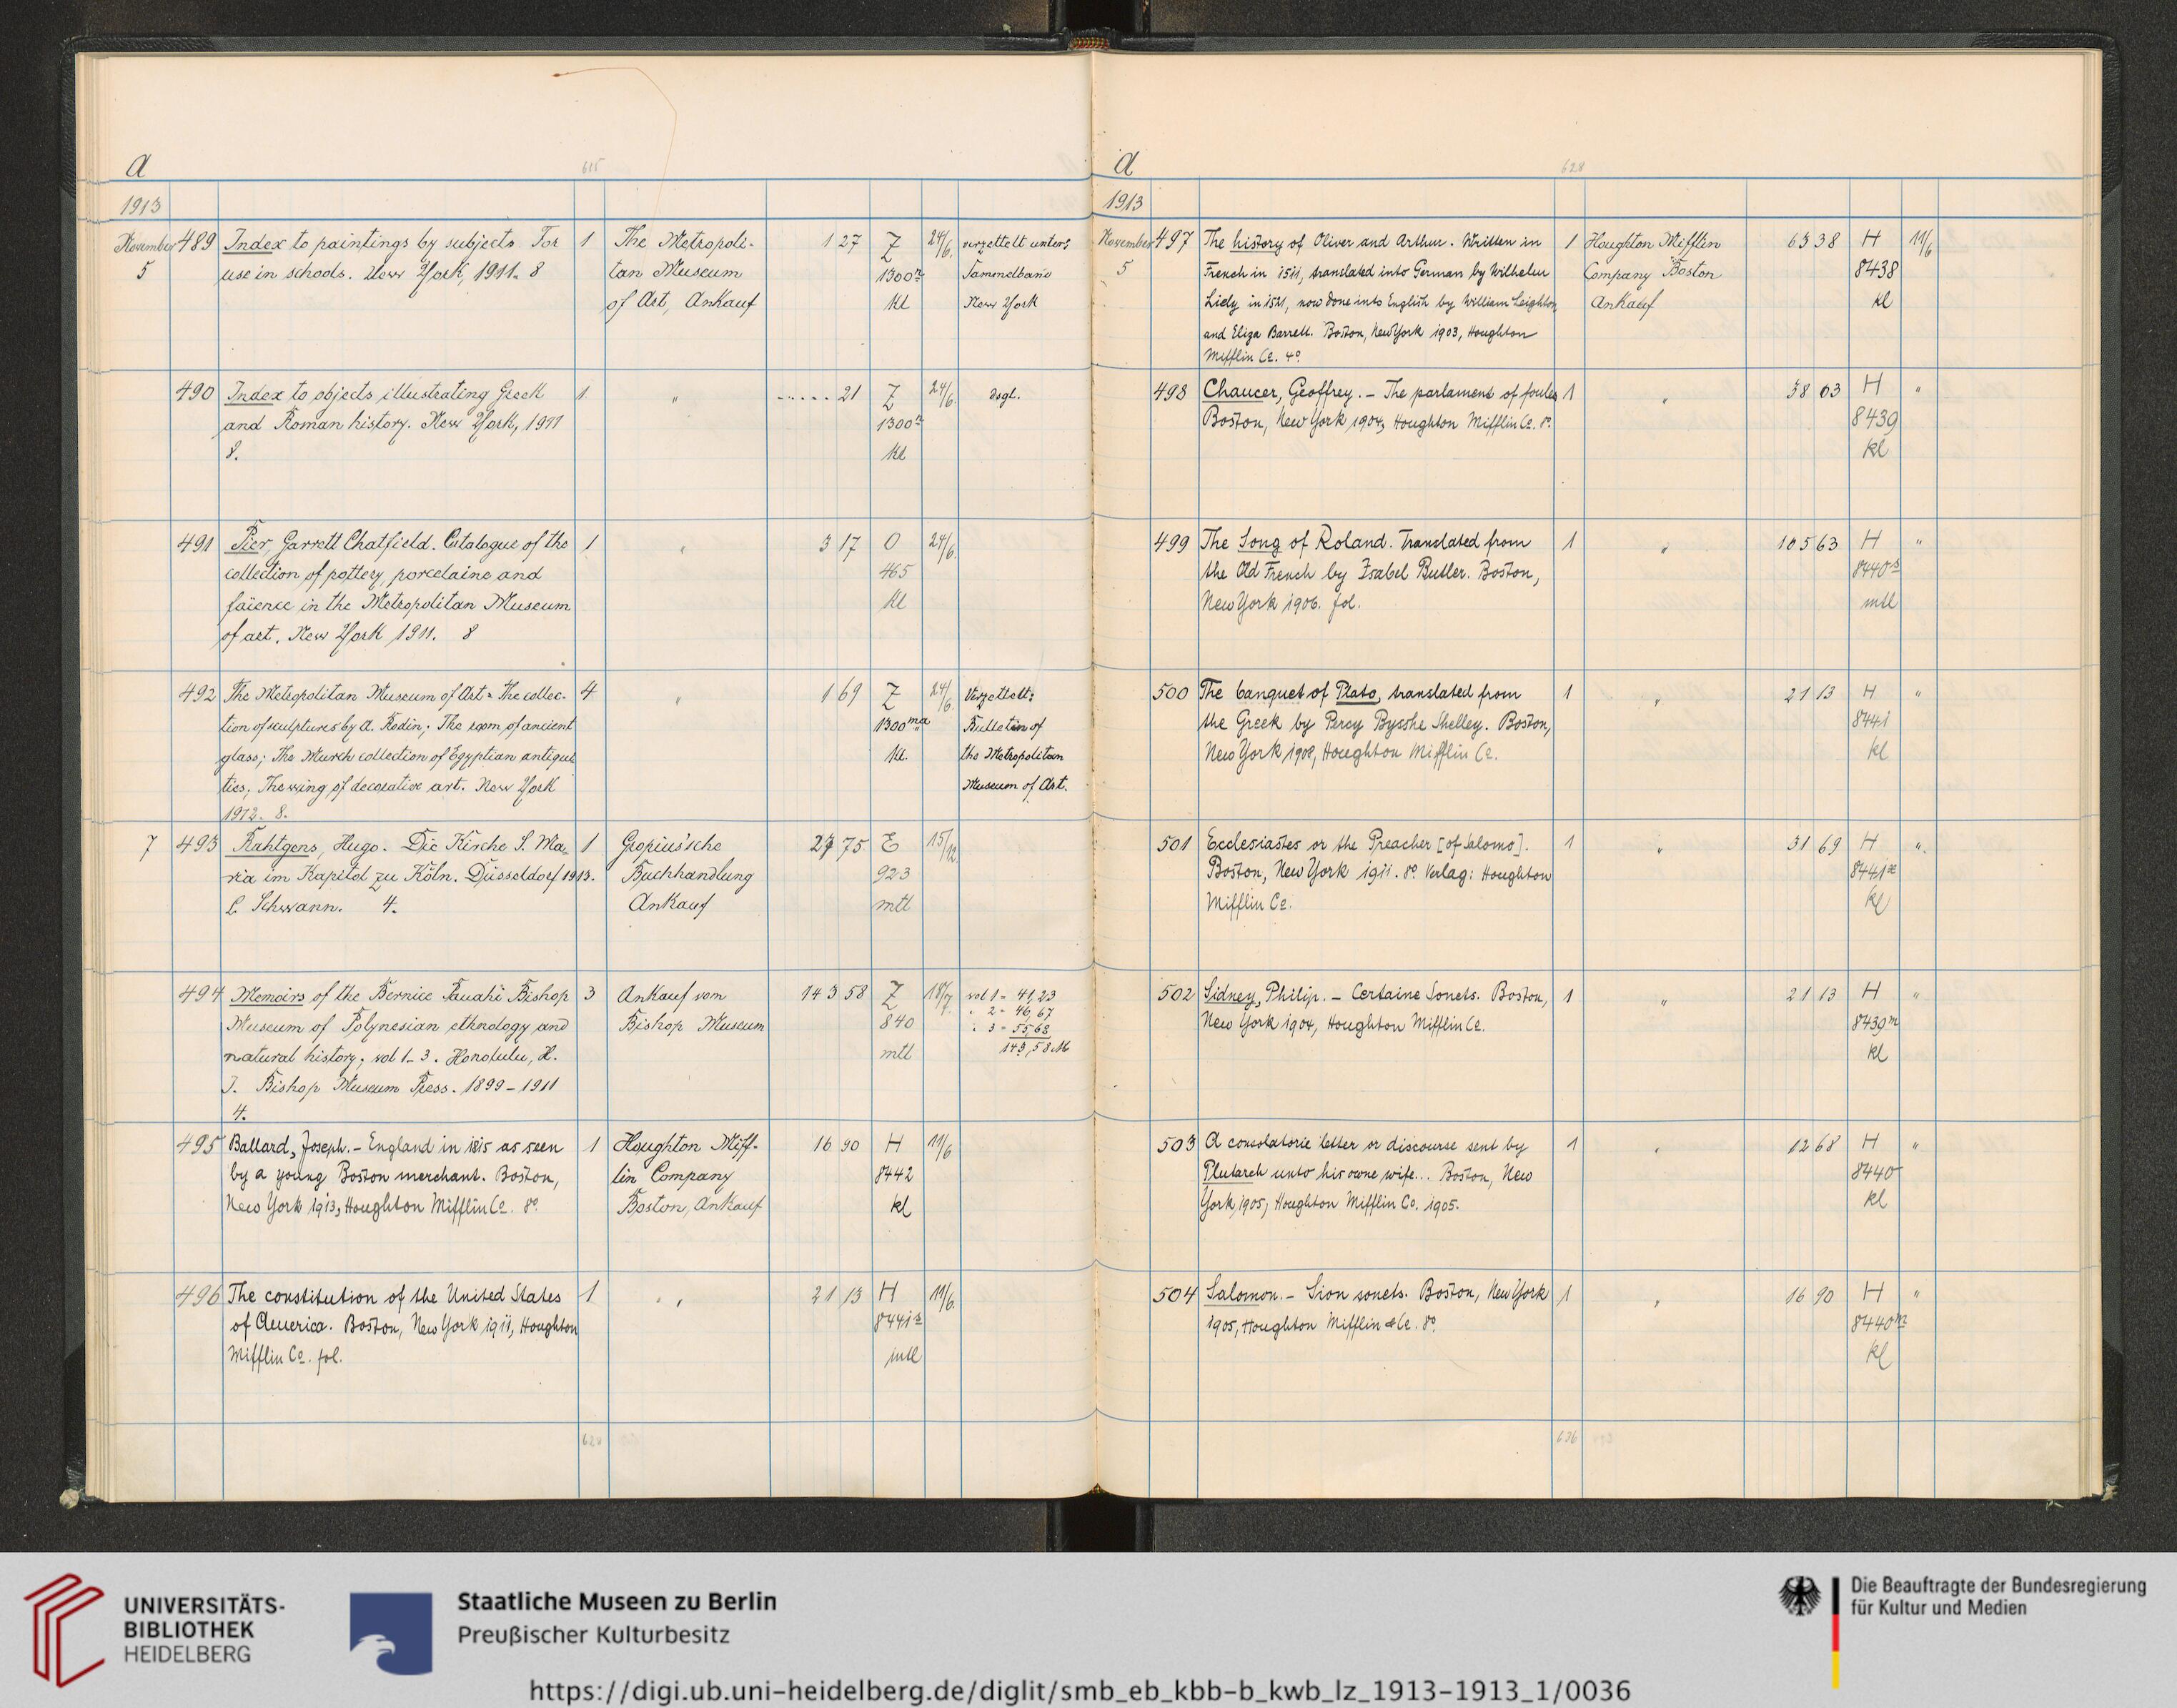 a
615
1913
November 489 Index to paintings by subjects. For 1 The Metropoli- 1 27 Z 24/6. verzettelt unter:
5 use in schools. New York, 1911. 8 tan Museum 1300 m Sammelband
of Art, Ankauf kl New York
490 Index to objects illustrating Greek 1 " ..... 21 Z 24/6. dsgl.
and Roman history. New York, 1911 1300 m
8. kl
491 Pier, Garrett Chatfield. Catalogue of the 1 " 3 17 O 24/6.
collection of pottery, porcelaine and 465
faïence in the Metropolitan Museum kl
of art. New York 1911. 8
492 The Metropolitan Museum of Art: The collec- 4 " 1 69 Z 24/6. Verzettelt:
tion of sculptures by A. Rodin; The room of ancient 1300 ma Bulletin of
glass; The Murch collection of Egyptian antiqui kl. the Metropolitan
ties; The wing of decorative art. New York Museum of Art.
1912. 8.
7 493 Rahtgens, Hugo. Die Kirche S. Ma- 1 Gropius'sche 27 75 E 15/12
ria im Kapitol zu Köln. Düsseldorf 1913. Buchhandlung 923
L. Schwann. 4. Ankauf mtl
494 Memoirs of the Bernice Pauahi Bishop 3 Ankauf vom 143 58 Z 18/7. vol 1 = 41,23
Museum of Polynesian ethnology and Bishop Museum 840 " 2 = 46,67
natural history; vol 1-3. Honolulu, H. mtl " 3 = 55,68
J. Bishop Museum Press. 1899-1911 143,58 M
4.
495 Ballard, Joseph. - England in 1815 as seen 1 Houghton Miff- 16 90 H 11/6
by a young Boston merchant. Boston, lin Company 8442
New York 1913, Houghton Mifflin Co. 8º Boston, Ankauf kl
496 The constitution of the United States 1 " " 21 13 H 11/6.
of America. Boston, New York, 1911, Houghton 8441
Mifflin Co. fol. mtl
628
a
628
1913
November 497 The history of Oliver and Arthur. Written in 1 Houghton Mifflin 63 38 H 11/6
5 French in 1511, translated into German by Wilhelm Company Boston 8438
Liely in 1521, now done into English by William Leighton Ankauf kl
and Eliza Barrett. Boston, New York 1903, Houghton
Mifflin Co. 4º
498 Chaucer, Geoffrey. - The parlament of foules 1 " 38 03 H "
Boston, New York 1904, Houghton Mifflin Co. 8º 8439
kl
499 The Song of Roland. Translated from 1 " 105 63 H "
the Old French by Isabel Butler. Boston, 8440
New York 1906. fol. mtl
500 The banquet of Plato, translated from 1 " 21 13 H "
the Greek by Percy Bysshe Shelley. Boston, 8441
New York 1908, Houghton Mifflin Co. kl
501 Ecclesiastes or the Preacher [of Salomo]. 1 " 31 69 H "
Boston, New York 1911. 8º Verlag: Houghton 8441
Mifflin Co. kl
502 Sidney, Philip. - Certaine Sonets. Boston, 1 " 21 13 H "
New York 1904, Houghton Mifflin Co. 8439 m
kl
503 A consolatorie letter or discourse sent by 1 " 12 68 H "
Plutarch unto his owne wife... Boston, New 8440
York, 1905, Houghton Mifflin Co. 1905. kl
504 Salomon. - Sion sonets. Boston, New York 1 " 16 90 H "
1905, Houghton Mifflin & Co. 8º 8440 m
kl
636
UNIVERSITÄTS-
BIBLIOTHEK
HEIDELBERG
Staatliche Museen zu Berlin
Preußischer Kulturbesitz
Die Beauftragte der Bundesregierung
für Kultur und Medien
https://digi.ub.uni-heidelberg.de/diglit/smb_eb_kbb-b_kwb_lz_1913-1913_1/0036